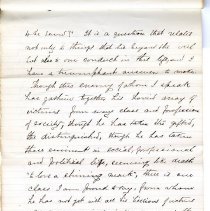 to be saved?" It is a question that relates
not only to things that lie beyond the veil
but also to our conduct in this life, and I
have a triumphant answer to make.
Though this enemy of whom I speak
has gathered together his horrid array of
victims from every class and profession
of society, though he has taken the gifted,
the distinguished, though he has taken
those eminent in social, professional
and political life, seeming like death
to love a shining mark, there is one
class I am proud to say, from whom
he has not yet with all his